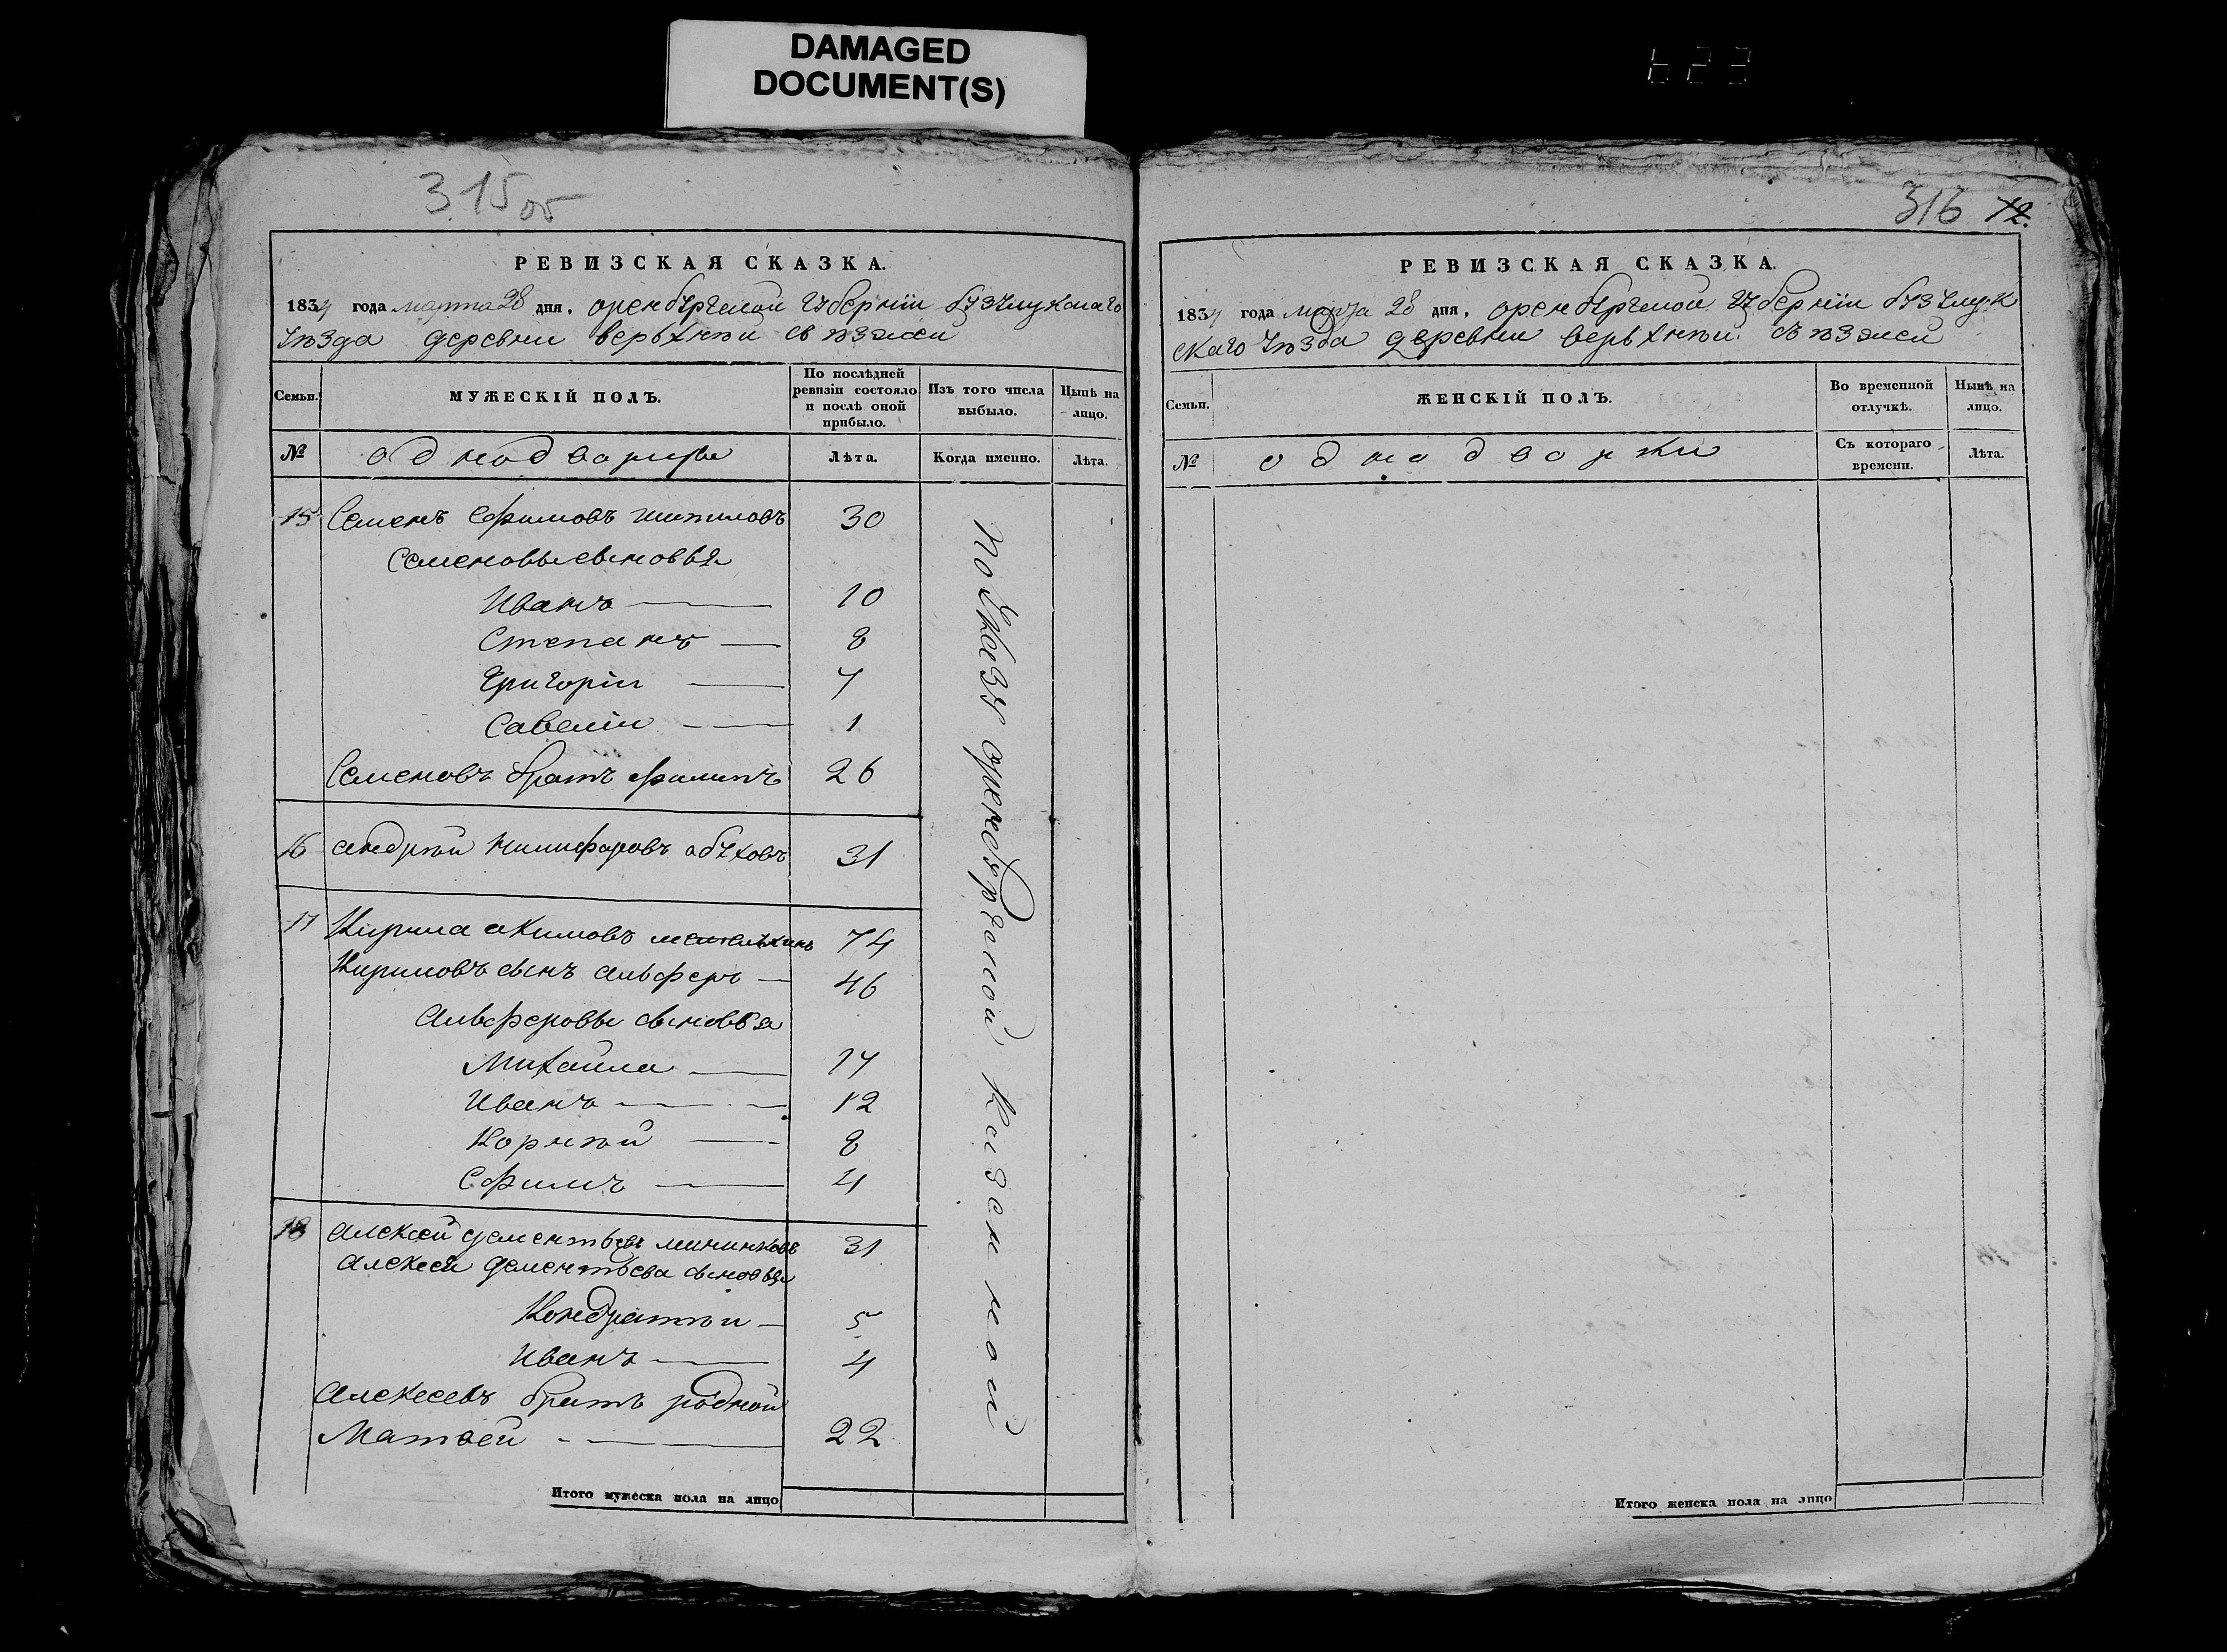 DAMAGED
DOCUMENT(S)
315об
РЕВИЗСКАЯ СКАЗКА.
1834 года марта 28 дня, оренбургской губернии бузулукскаго
уѣзда деревни верьхнѣй съѣзжей
Семьи.
МУЖЕСКІЙ ПОЛЪ.
По послѣдней
ревизіи состояло
и послѣ оной
прибыло.
Изъ того числа
выбыло.
Нынѣ на
лицо.
№
однодворцы
Лѣта.
Когда именно.
Лѣта.
15 Семенъ Ефимовъ шипиловъ 30
Семеновы сыновья
Иванъ 10
Степанъ 8
Григоріи 7
Савеліи 1
Семеновъ братъ филипъ 26
16 андрѣй никифаровъ абуховъ 31
17 Кирила акимовъ 74
Кириловъ сынъ алъферъ 46
Алъферовы сыновья
Михаила 17
Иванъ 12
Корнѣй 8
Ефимъ 4
18 алексей дементьевъ мининковъ 31
алексея дементьева сыновья
Кондратѣи 5
Иванъ 4
Алексеевъ братъ родной
Матвей 22
по указу оренбургской казенной
Итого мужеска пола на лицо
316 72.
РЕВИЗСКАЯ СКАЗКА.
1834 года марта 28 дня, оренбургской губерніи бузулук
скаго уѣзда деревни верьхнѣй съѣзжей
Семьи.
ЖЕНСКІЙ ПОЛЪ.
Во временной
отлучкѣ.
Нынѣ на
лицо.
№
однодворки
Съ котораго
времени.
Лѣта.
Итого женска пола на лицо